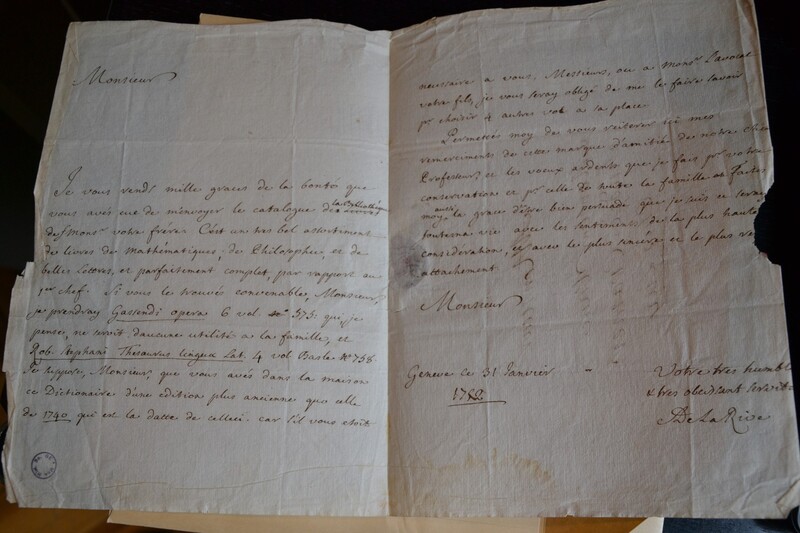 Monsieur
Je vous rends mille graces de la bonté que
vous avés eue de m'envoyer le catalogue de la Bibliotheque
de f. Mons.r votre frere. C'est un tres bel assortiment
de livres de Mathématiques, de Philosophie, et de
belles Lettres, et parfaitement complet, par rapport au
1.er chef. Si vous le trouvés convenable, Monsieur,
je prendray Gassendi opera 6 vol N.o 575. qui, je
pense, ne seroit d'aucune utilité a la famille, et
Rob. Stephani Thesaurus linguæ Lat. 4 vol Basle N.o 758.
Je suppose, Monsieur, que vous avés dans la maison
ce Dictionaire d'une edition plus ancienne que celle
de 1740 qui est la datte de celleci. car s'il vous etoit
necessaire a vous, Messieurs, ou a Mons.r l'avocat
votre fils, je vous seray obligé de me le faire savoir
p.r choisir 4 autres vol. a sa place.
Permettés moy de vous reiterer ici mes
remerciments de cette marque d'amitié de notre cher
Professeur, et les voeux ardents que je fais p.r votre
conservation et p.r celle de toute la famille. Faites
moy aussi la grace d'etre bien persuadé que je suis et seray
toute ma vie avec les sentiments de la plus haute
considération, et avec le plus sincére et le plus vrai
attachement
Monsieur
Geneve ce 31 Janvier
Votre tres humble
& tres obeissant serviteur
De La Rive